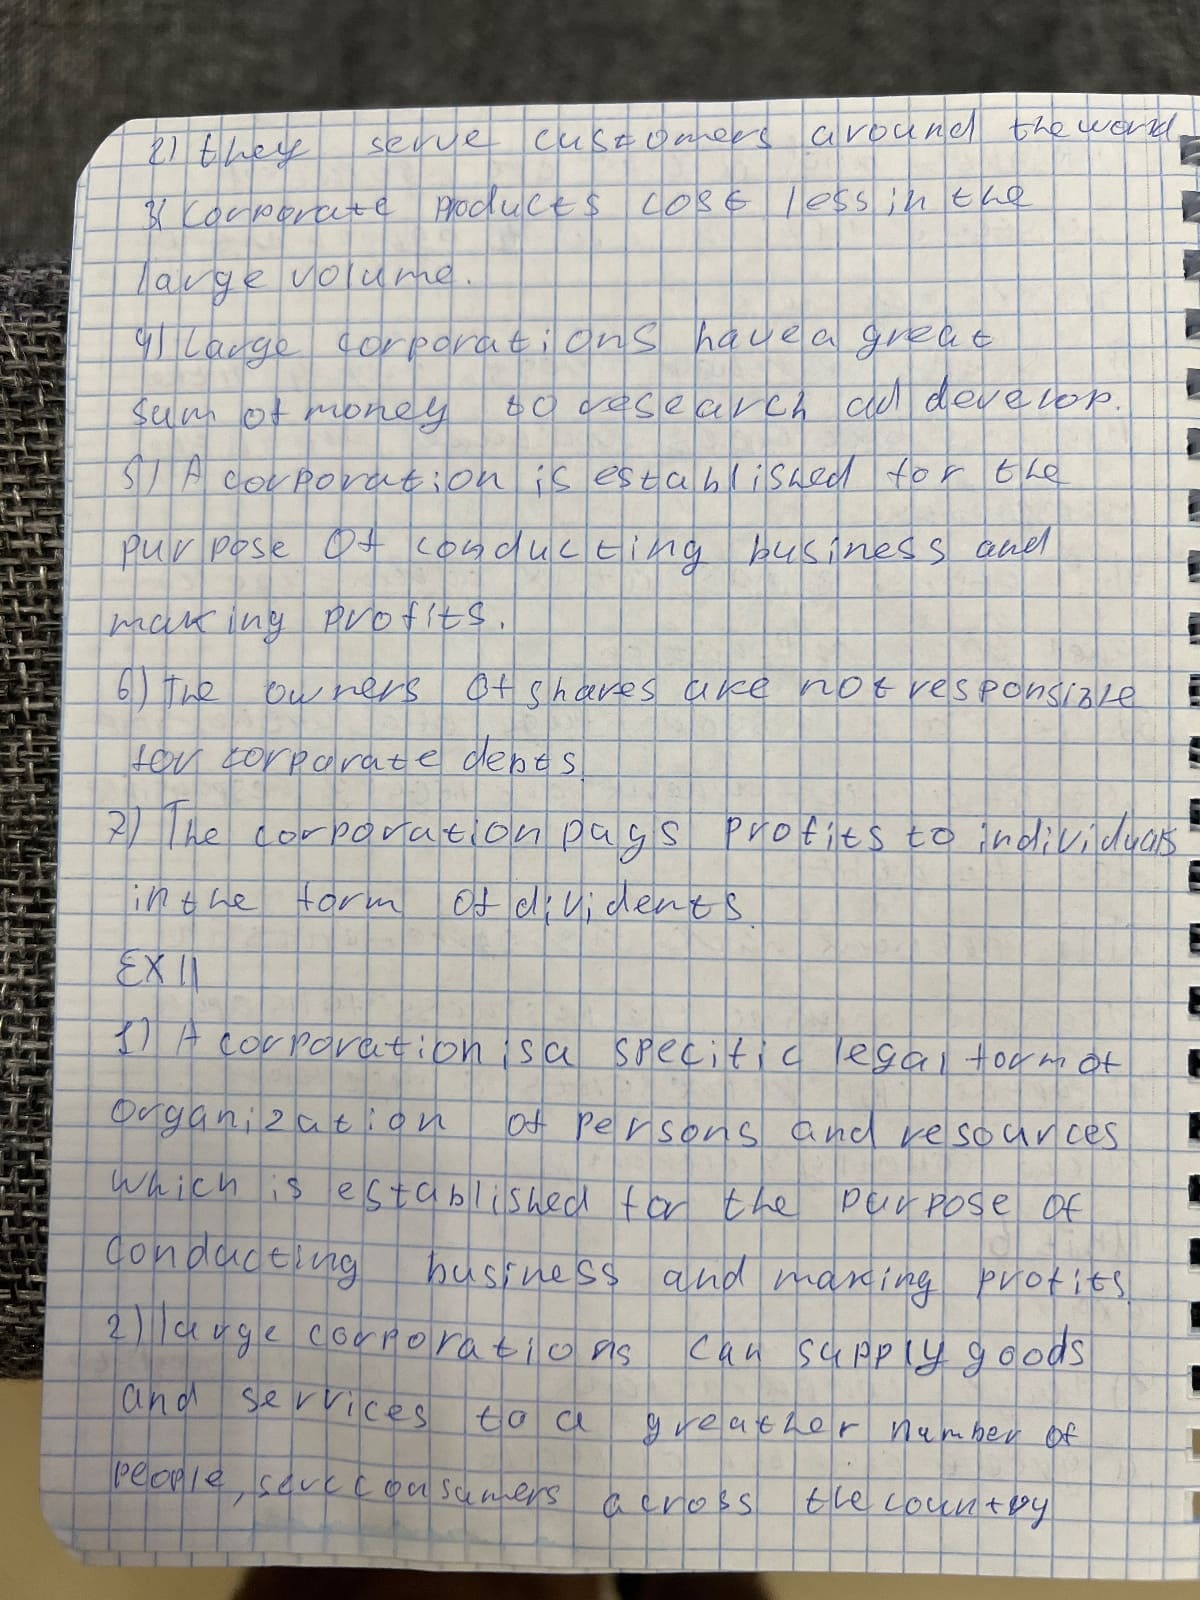 2) they serve customers around the world
3) Corporate products cost less in the
large volume.
4) Large corporations have a great
sum of money to research ad develop.
5) A corporation is established for the
purpose of conducting business and
making profits.
6) The owners of shares are not responsible
for corporate debts.
7) The corporation pays profits to individuals
in the form of dividents.
EX II
1) A corporation is a specific legal form of
organization of persons and resources
which is established for the purpose of
conducting business and making profits.
2) large corporations can supply goods
and services to a greather number of
people, serve consumers across the country